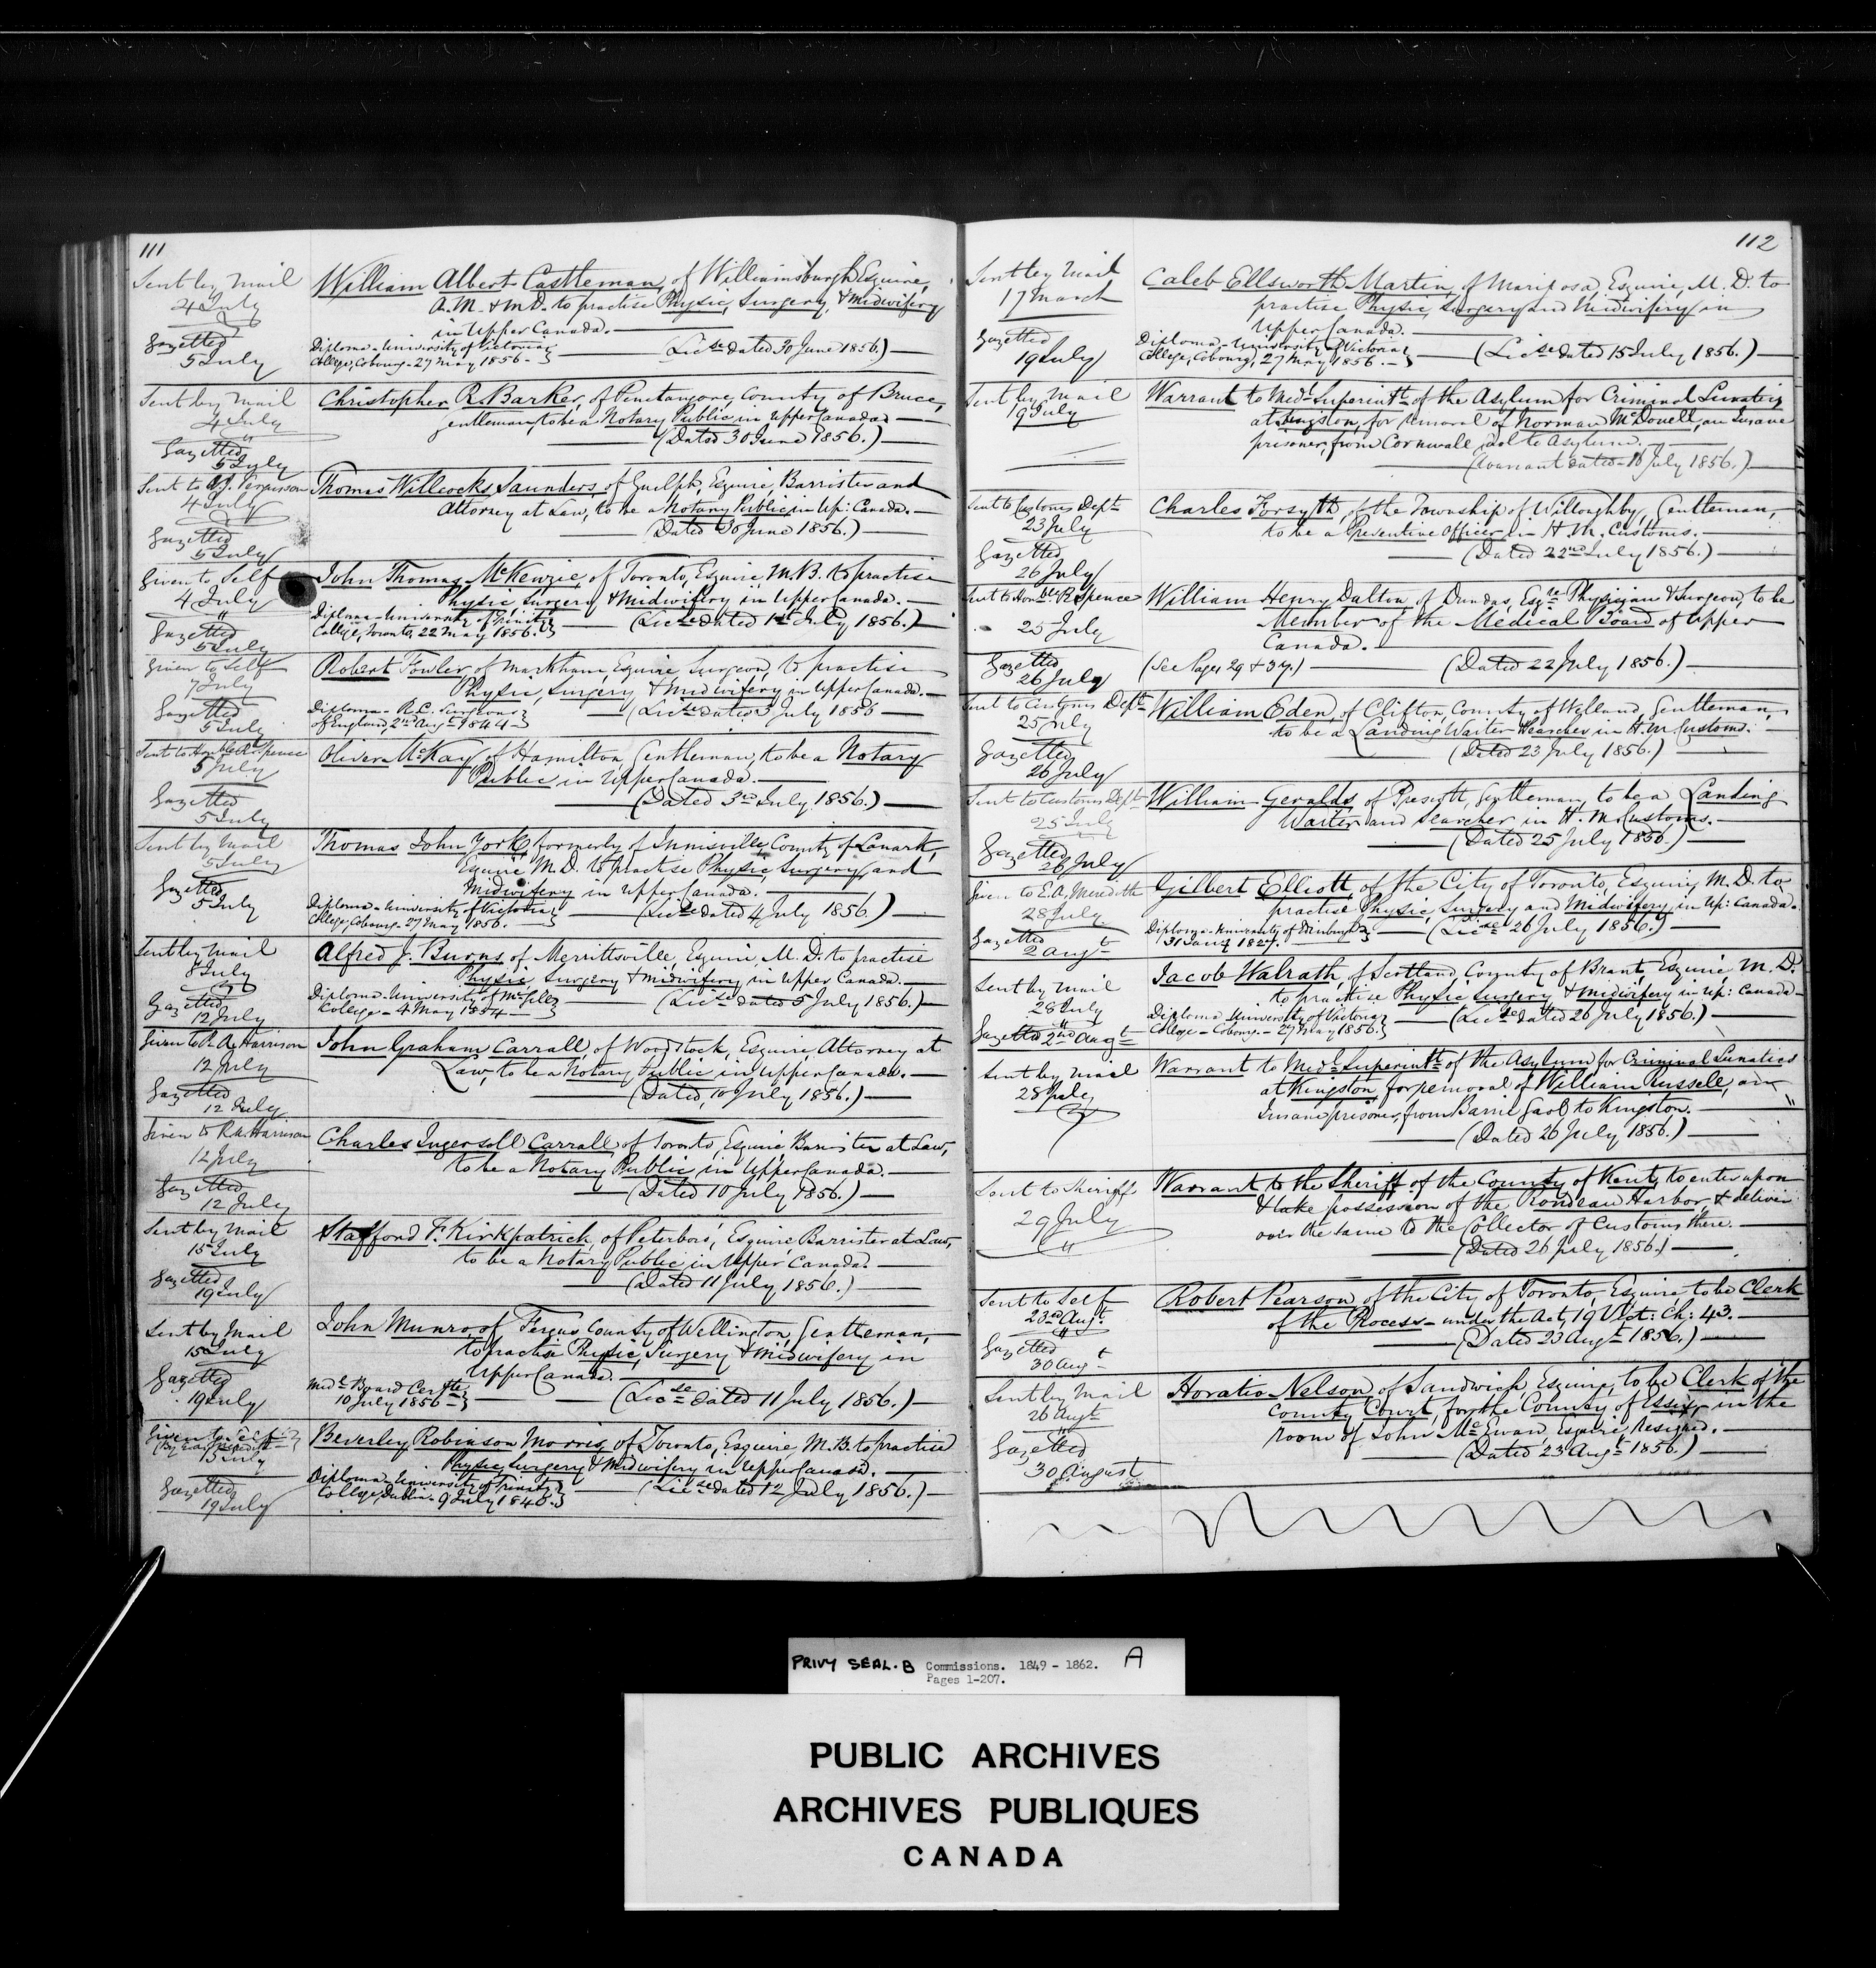 111
Sent by Mail
4 July
Gazetted
5 July
William Albert Castleman, of Williamsburgh, Esquire,
A.M. & M.D. to practise Physic, Surgery, & Midwifery
in Upper Canada.
Diploma - University of Victoria
College, Cobourg - 27 May 1856 -
(Licse dated 30 June 1856.)
Sent by Mail
4 July
"
Gazetted
5 July
Christopher R. Barker, of Penetangore, County of Bruce,
gentleman, to be a Notary Public in Upper Canada.
(Dated 30 June 1856.)
Sent to A.J. Fergusson
4 July
Gazetted
5 July
Thomas Willcocks Saunders, of Guelph, Esquire, Barrister and
Attorney at Law, to be a Notary Public in Up: Canada.
(Dated 30 June 1856.)
Given to Self
4 July
"
Gazetted
5 July
John Thomas McKenzie, of Toronto, Esquire, M.B. to practise
Physic, Surgery & Midwifery in Upper Canada.
Diploma - University of Trinity
College, Toronto, 22 May 1856.
(Licse dated 1st July 1856.)
Given to Self
7 July
Gazetted
5 July
Robert Fowler, of Markham, Esquire, Surgeon, to practise
Physic, Surgery & Midwifery in Upper Canada.
Diploma - R.C. Surgeons
of England, 2nd Augt 1844 -
(Licse dated 3 July 1856
Sent to Honble R. Spence
5 July
Gazetted
5 July
Oliver McKay, of Hamilton, Gentleman, to be a Notary
Public in Upper Canada.
(Dated 3rd July 1856.)
Sent by Mail
5 July
Gazetted
5 July
Thomas John York, formerly of Innisville, County of Lanark,
Esquire M.D. to practise Physic, Surgery, and
Midwifery in Upper Canada.
Diploma - University of Victoria
College, Cobourg - 27 May 1856.
(Licse dated 4 July 1856.)
Sent by Mail
8 July
Gazetted
12 July
Alfred J. Burns of Merrittsville, Esquire, M.D. to practise
Physic, Surgery & Midwifery in Upper Canada.
Diploma - University of McGill
College - 4 May 1854 -
(Licse dated 5 July 1856.)
Given to R.A. Harrison
12 July
Gazetted
12 July
John Graham Carrall, of Woodstock, Esquire, Attorney at
Law, to be a Notary Public in Upper Canada.
(Dated, 10 July 1856.)
Given to R.A. Harrison
12 July
Gazetted
12 July
Charles Ingersoll Carrall, of Toronto, Esquire, Barrister at Law,
to be a Notary Public in Upper Canada.
(Dated 10 July 1856.)
Sent by Mail
15 July
Gazetted
19 July
Stafford F. Kirkpatrick, of Peterboro', Esquire, Barrister at Law,
to be a Notary Public in Upper Canada.
(Dated 11 July 1856.)
Sent by Mail
15 July
Gazetted
19 July
John Munro, of Fergus, County of Wellington, Gentleman,
to practise Physic, Surgery & Midwifery in
Upper Canada.
Medl Board Certfte
10 July 1856
(Licse dated 11 July 1856.)
Given to Self
15 July
Gazetted
19 July
Beverley Robinson Morris, of Toronto, Esquire, M.B. to practise
Physic, Surgery & Midwifery in Upper Canada.
Diploma - University of Trinity
College, Dublin - 9 July 1840.
(Licse dated 12 July 1856.)
112
Sent by Mail
17 March
Gazetted
19 July
Caleb Ellsworth Martin, of Mariposa, Esquire, M.D. to
practise Physic, Surgery and Midwifery in
Upper Canada.
Diploma - University of Victoria
College, Cobourg, 27 May 1856. -
(Licse dated 15 July 1856.)
Sent by Mail
19 July
Warrant to Medl Superintt of the Asylum for Criminal Lunatics
at Kingston, for removal of Norman McDonell, an Insane
prisoner, from Cornwall gaol to Asylum.
(Warrant dated 18 July 1856.)
Sent to Customs Dept
23 July
Gazetted
26 July
Charles Forsyth, of the Township of Willoughby, Gentleman,
to be a Preventive Officer in H.M. Customs.
(Dated 22nd July 1856.)
Sent to Honble R. Spence
25 July
Gazetted
26 July
William Henry Dalton, of Dundas, Esqre Physician & Surgeon, to be
Member of the Medical Board of Upper
Canada.
(See Pages 29 & 37.)
(Dated 22 July 1856.)
Sent to Customs Dept
25 July
Gazetted
26 July
William Eden, of Clifton, County of Welland, Gentleman,
to be a Landing Waiter & Searcher in H.M. Customs.
(Dated 23 July 1856.)
Sent to Customs Dept
25 July
Gazetted
26 July
William Geralds, of Prescott, Gentleman, to be a Landing
Waiter and Searcher in H.M. Customs.
(Dated 25 July 1856.)
Given to E.A. Meredith
28 July
Gazetted
2 Augt
Gilbert Elliott, of the City of Toronto, Esquire, M.D. to
practise Physic, Surgery and Midwifery, in Up: Canada.
Diploma - University of Edinburgh
31 Jany 1827.
(Licse 26 July 1856.)
Sent by Mail
28 July
"
Gazetted 2nd Augt
Jacob Walrath, of Scotland, County of Brant, Esquire, M.D.
to practise Physic, Surgery & Midwifery in Up: Canada
Diploma University of Victoria
College - Cobourg - 27 May 1856.
(Licse dated 26 July 1856.)
Sent by Mail
28 July
Warrant to Medl Superintt of the Asylum for Criminal Lunatics
at Kingston, for removal of William Russell, an
Insane prisoner, from Barrie Gaol to Kingston.
(Dated 26 July 1856.)
Sent to Sheriff
29 July
"
Warrant to the Sheriff of the County of Kent, to enter upon
& take possession of the Rondeau Harbor, & deliver
over the same to the Collector of Customs there.
(Dated 26 July 1856.)
Sent to Self
23rd Augt
"
Gazetted
30 Augt
Robert Pearson, of the City of Toronto, Esquire to be Clerk
of the Process - under the Act, 19 Vict: Ch: 43.
(Dated 23 Augt 1856.)
Sent by Mail
26 Augt
"
Gazetted
30 August
Horatio Nelson, of Sandwich, Esquire, to be Clerk of the
County Court, for the County of Essex, in the
room of John McEwan, Esquire, Resigned.
(Dated 23 Augt 1856.)
PRIVY SEAL. B Commissions. 1849 - 1862. A
Pages 1-207.
PUBLIC ARCHIVES
ARCHIVES PUBLIQUES
CANADA